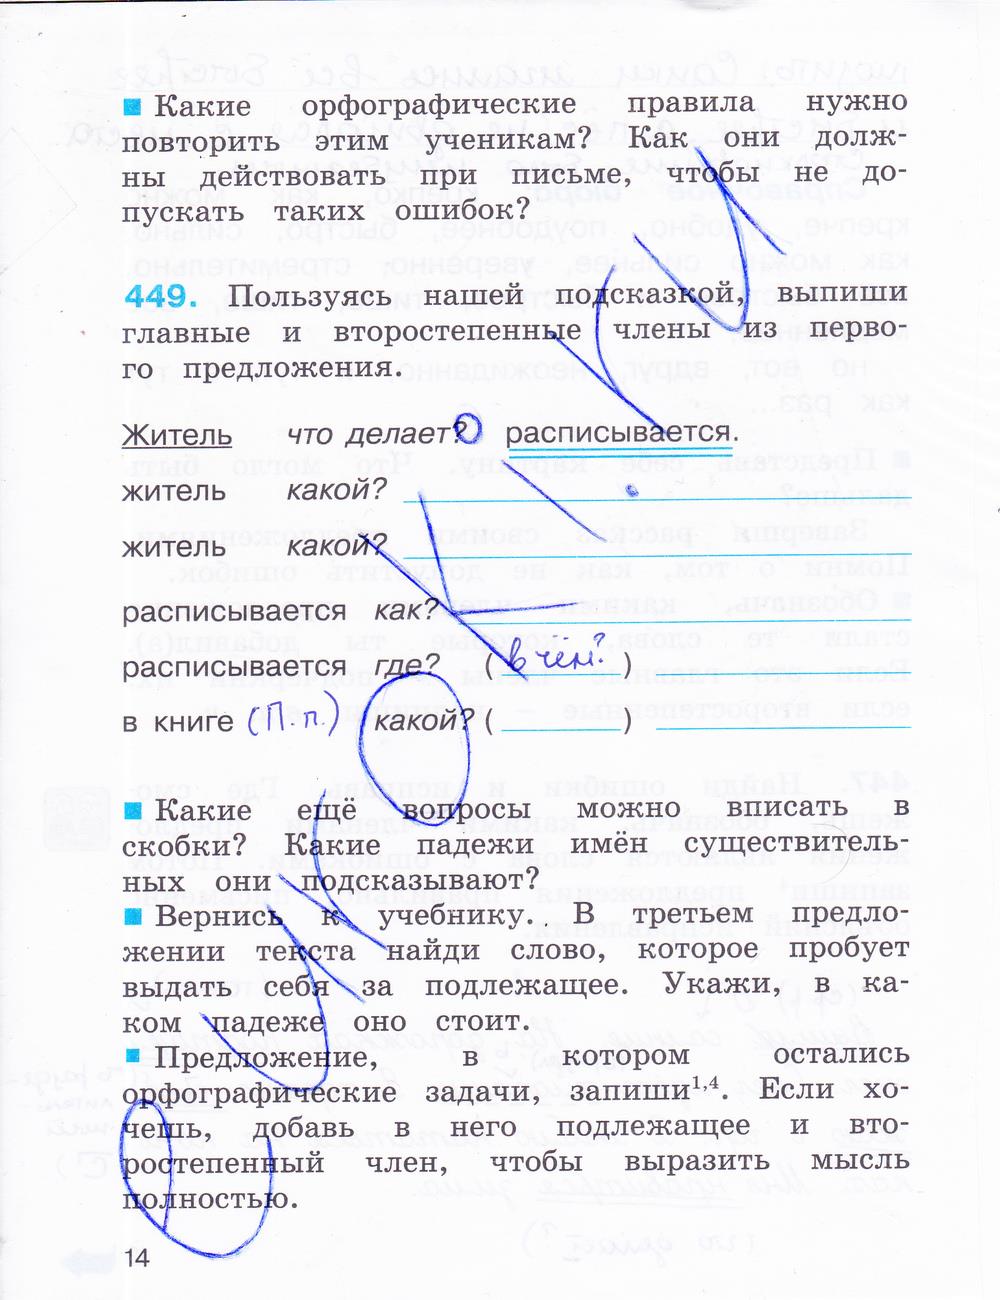 Какие орфографические правила нужно
повторить этим ученикам? Как они долж-
ны действовать при письме, чтобы не до-
пускать таких ошибок?
449. Пользуясь нашей подсказкой, выпиши
главные и второстепенные члены из перво-
го предложения.
Житель что делает? расписывается.
житель какой?
житель какой?
расписывается как?
расписывается где? (в чём?)
в книге (П.п.) какой? ( )
Какие ещё вопросы можно вписать в
скобки? Какие падежи имён существитель-
ных они подсказывают?
Вернись к учебнику. В третьем предло-
жении текста найди слово, которое пробует
выдать себя за подлежащее. Укажи, в ка-
ком падеже оно стоит.
Предложение, в котором остались
орфографические задачи, запиши1,4. Если хо-
чешь, добавь в него подлежащее и вто-
ростепенный член, чтобы выразить мысль
полностью.
14